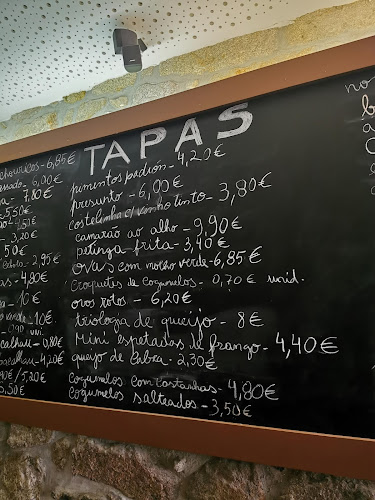 TAPAS
pimentos padrión - 4,20€
presunto - 6,00€
costelinha c/ vinho tinto - 3,80€
camarão ao alho - 9,90€
petinga frita - 3,40€
ovas com molho verde - 6,85€
croquetes de cogumelos - 0,70€ unid.
ovos rotos - 6,20€
triologia de queijo - 8€
Mini espetadas de frango - 4,40€
queijo de cabra - 2,30€
cogumelos com castanhas - 4,80€
cogumelos salteados - 3,50€
chouriços - 6,85€
7,80€
5,50€
3,20
50€
2,95
4,80€
10€
10€
0,80€
4,20€
5,20€